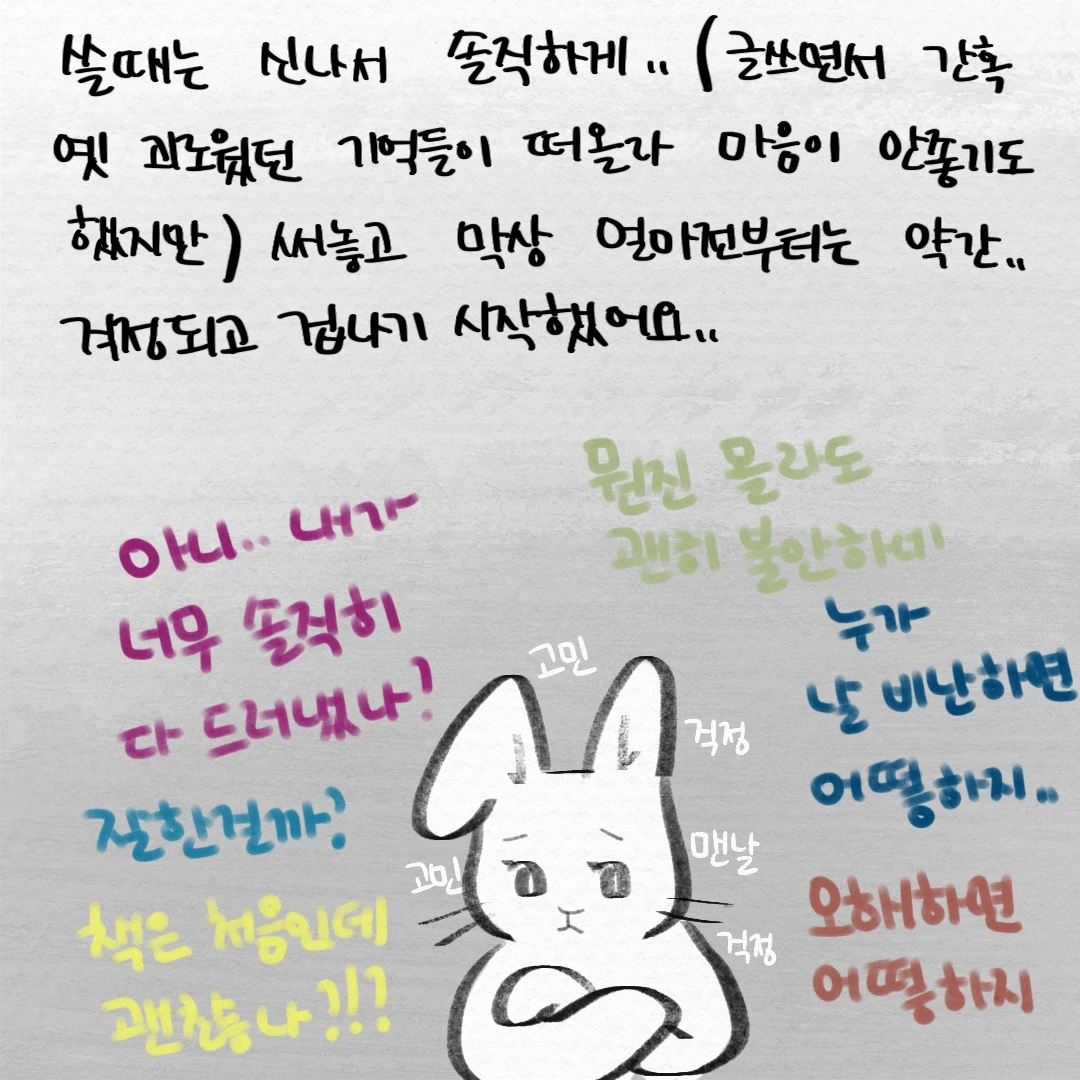 쓸때는 신나서 솔직하게.. (글쓰면서 간혹
옛 괴로웠던 기억들이 떠올라 마음이 안좋기도
했지만) 써놓고 막상 얼마전부터는 약간..
걱정되고 겁나기 시작했어요..
뭔진 몰라도
괜히 불안하네
아니.. 내가
너무 솔직히
다 드러냈나?
누가
날 비난하면
어떻하지..
고민
걱정
잘한걸까?
맨날
고민
걱정
책은 처음인데
괜찮나?!?
오해하면
어떻하지